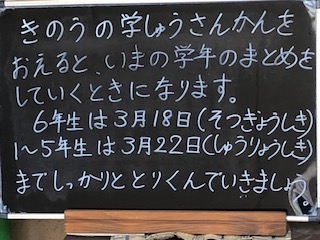 きのうの学しゅうさんかんを
おえると、いまの学年のまとめを
していくときになります。
6年生は3月18日(そつぎょうしき)
1~5年生は3月22日(しゅうりょうしき)
までしっかりととりくんでいきましょう。